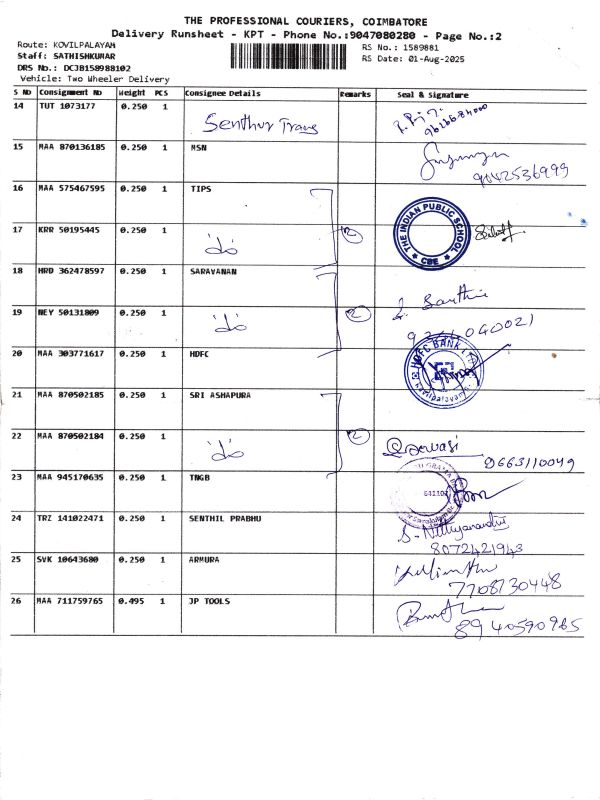 THE PROFESSIONAL COURIERS, COIMBATORE
Delivery Runsheet - KPT - Phone No.:9047080280 - Page No.:2
Route: KOVILPALAYAM
Staff: SATHISHKUMAR
DRS No.: DCJB158988102
Vehicle: Two Wheeler Delivery
RS No.: 1589881
RS Date: 01-Aug-2025
S NO Consignment No Weight PCS Consignee Details Remarks Seal & Signature
14 TUT 1073177 0.250 1 Senthur Trans
15 MAA 870136185 0.250 1 MSN 9042536999
16 MAA 575467595 0.250 1 TIPS
THE INDIAN PUBLIC SCHOOL
CBE
17 KRR 50195445 0.250 1 'do' 2
18 HRD 362478597 0.250 1 SARAVANAN
19 NEY 50131809 0.250 1 'do' 2
20 MAA 303771617 0.250 1 HDFC
HDFC BANK LTD
21 MAA 870502185 0.250 1 SRI ASHAPURA
22 MAA 870502184 0.250 1 'do' 2 9663110049
23 MAA 945170635 0.250 1 TNGB
24 TRZ 141022471 0.250 1 SENTHIL PRABHU S-Nithyanandhi
8072421943
25 SVK 10643680 0.250 1 ARMURA
7708730448
26 MAA 711759765 0.495 1 JP TOOLS
8940590965